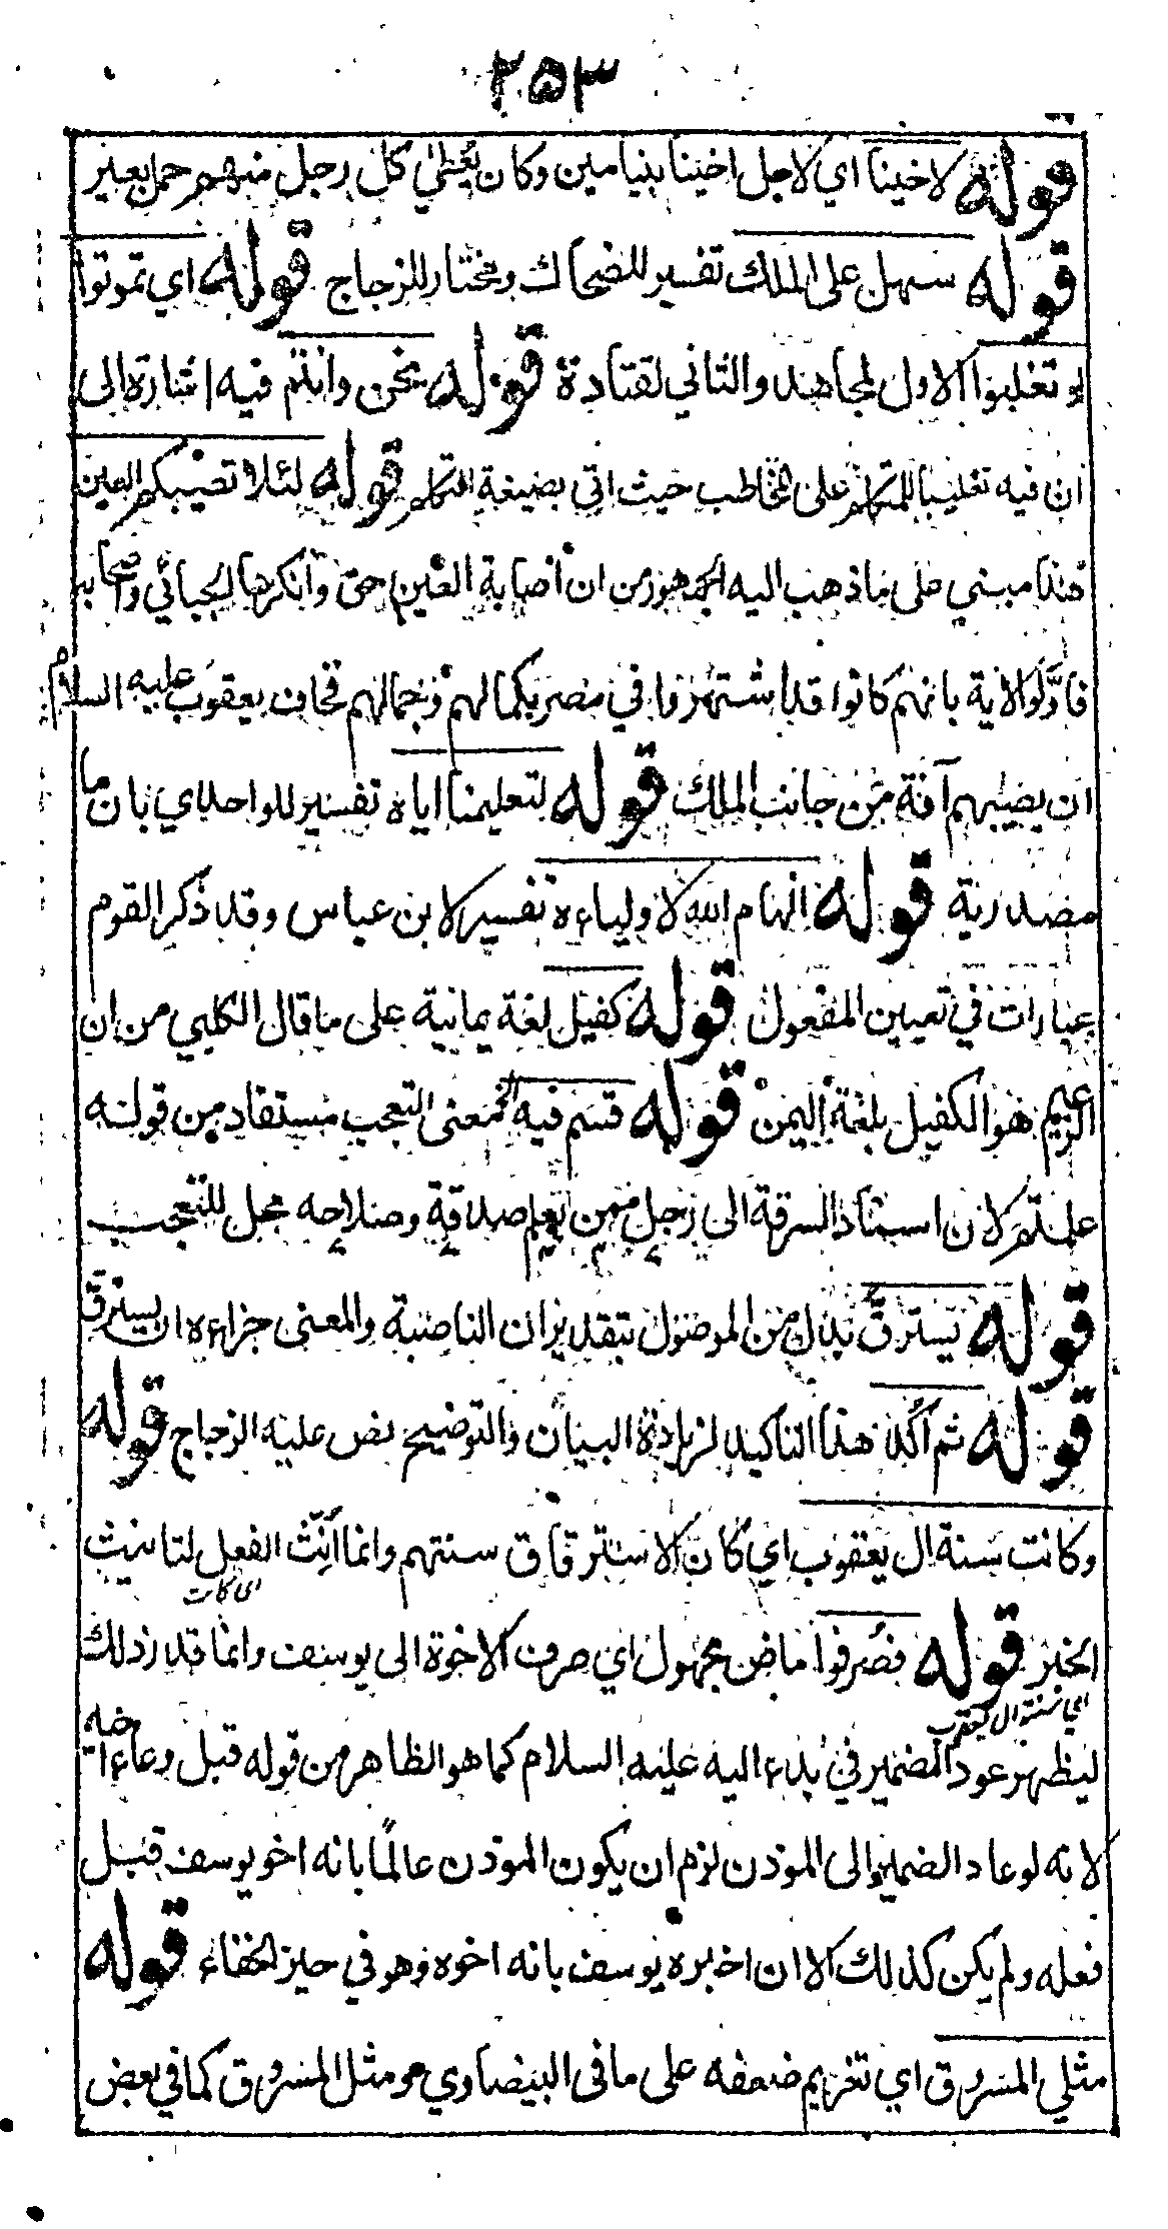 ۲۵۳
قوله لاخينا اي لاجل اخينا بنيامين وكان يعطي كل رجل منهم حمل بعير
قوله سهل على الملك تفسير للضحاك ومختار للزجاج قوله اي تموتوا
او تغلبوا الاول لمجاهد والثاني لقتادة قوله نحن وانتم فيه اشارة الى
ان فيه تغليبا للمتكلم على المخاطب حيث اتي بصيغة المتكلم قوله لئلا تصيبكم العين
هذا مبني على ما ذهب اليه الجمهور من ان اصابة العين حق وانكرها الجبائي واصحابه
فاولوا الاية بانهم كانوا قد اشتهروا في مصر بكمالهم وجمالهم فخاف يعقوب عليه السلام
ان يصيبهم آفة من جانب الملك قوله لتعليمنا اياه تفسير للواحدي بان ما
مصدرية قوله الهام الله لاولياءه تفسير لابن عباس وقد ذكر القوم
عبارات في تعيين المفعول قوله كفيل لغة يمانية على ما قال الكلبي من ان
الزعيم هو الكفيل بلغة اليمن قوله قسم فيه الخ معنى التعجب مستفاد من قوله
علمتم لان اسناد السرقة الى رجل منهم تعلم صداقة وصلاحه محل للتعجب
قوله يسترقّ بدل من الموصول بتقدير ان الناصبة والمعنى جزاءه ان يسترقّ
قوله ثم اُكّد هذا التاكيد لزيادة البيان والتوضيح نص عليه الزجاج قوله
وكانت سنة ال يعقوب اي كان الاسترقاق سنتهم وانما اُنِّث الفعل لتانيث
اى كانت
الخبر قوله فصُرفوا ماض مجهول اي صرف الاخوة الى يوسف وانما قدر ذلك
اي سنة ال يعقوب
ليظهر عود الضمير في بدء اليه عليه السلام كما هو الظاهر من قوله قبل وعاء اخيه
لانه لو عاد الضمير الى الموذن لزم ان يكون الموذن عالمًا بانه اخو يوسف قبل
فعله ولم يكن كذلك الا ان اخبره يوسف بانه اخوه وهو في حيز الخفاء قوله
مثلي المسروق اي تغريم ضعفه على ما في البيضاوي هو مثل المسروق كما في بعض